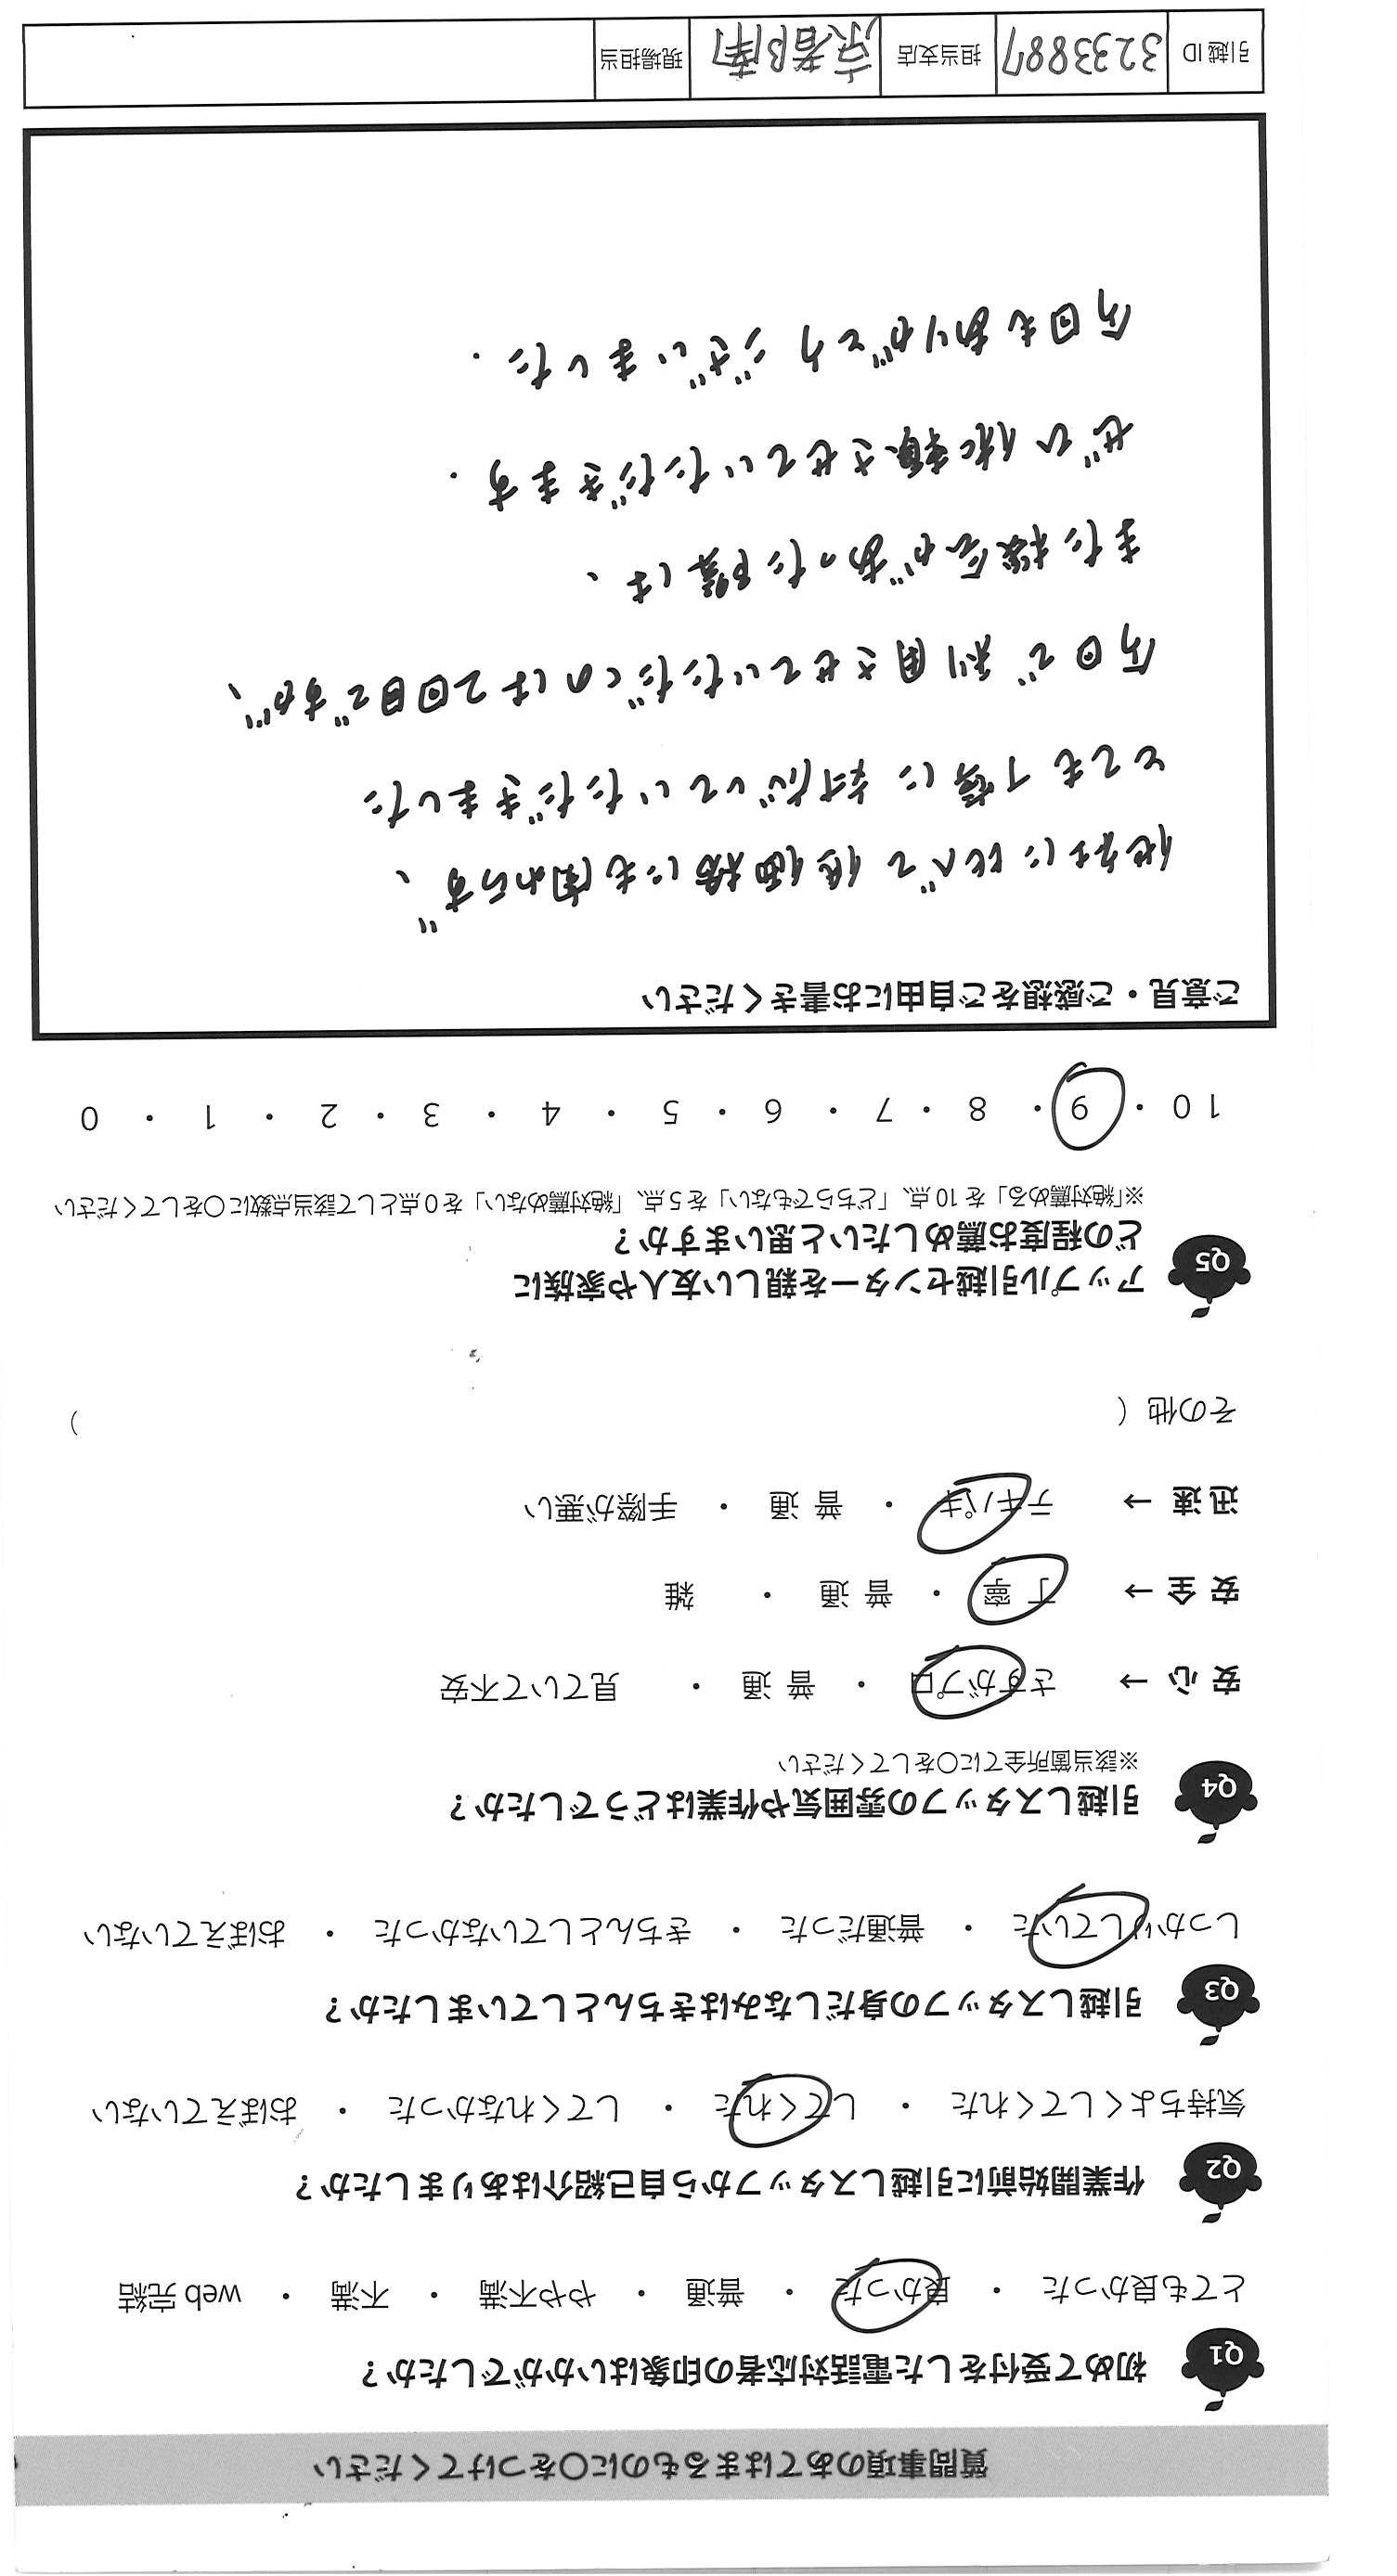 質問事項のあてはまるものに○をつけてください
Q1 初めて受付をした電話対応者の印象はいかがでしたか？
とても良かった ・ 良かった ・ 普通 ・ やや不満 ・ 不満 ・ web 完結
Q2 作業開始前に引越しスタッフから自己紹介はありましたか？
気持ちよくしてくれた ・ してくれた ・ してくれなかった ・ おぼえていない
Q3 引越しスタッフの身だしなみはきちんとしていましたか？
しっかりしていた ・ 普通だった ・ きちんとしていなかった ・ おぼえていない
Q4 引越しスタッフの雰囲気や作業はどうでしたか？
※該当箇所全てに○をしてください
安心 → さすがプロ ・ 普通 ・ 見ていて不安
安全 → 丁寧 ・ 普通 ・ 雑
迅速 → テキパキ ・ 普通 ・ 手際が悪い
その他（　）
Q5 アップル引越センターを親しい友人や家族に
どの程度お薦めしたいと思いますか？
※「絶対薦める」を 10 点、「どちらでもない」を 5 点、「絶対薦めない」を 0 点として該当点数に○をしてください
10 ・ 9 ・ 8 ・ 7 ・ 6 ・ 5 ・ 4 ・ 3 ・ 2 ・ 1 ・ 0
ご意見・ご感想をご自由にお書きください
他社に比べて低価格にも関わらず、
とても丁寧に運んでいただきました
今回で利用させていただくのは2回目ですが、
また機会があった際は、
ぜひ依頼させていただきます.
今回もありがとうございました.
引越 ID 3233887 担当支店 京都南 現場担当